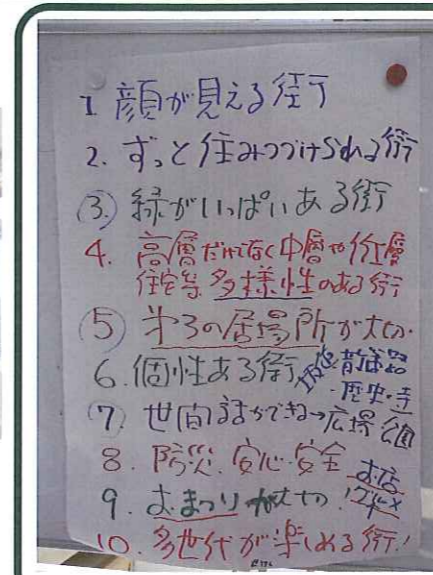 1 顔が見える街
2. ずっと住みつづけられる街
③. 緑がいっぱいある街
4. 高層だけでなく中層や低層
住宅等.多様性のある街
⑤ 第3の居場所が大切.
6. 個性ある街
散策路
・歴史・寺
⑦ 世間話ができる→広場 公園
8. 防災.安心.安全
お店
9. おまつりが大切.
10. 多世代が楽しめる街!